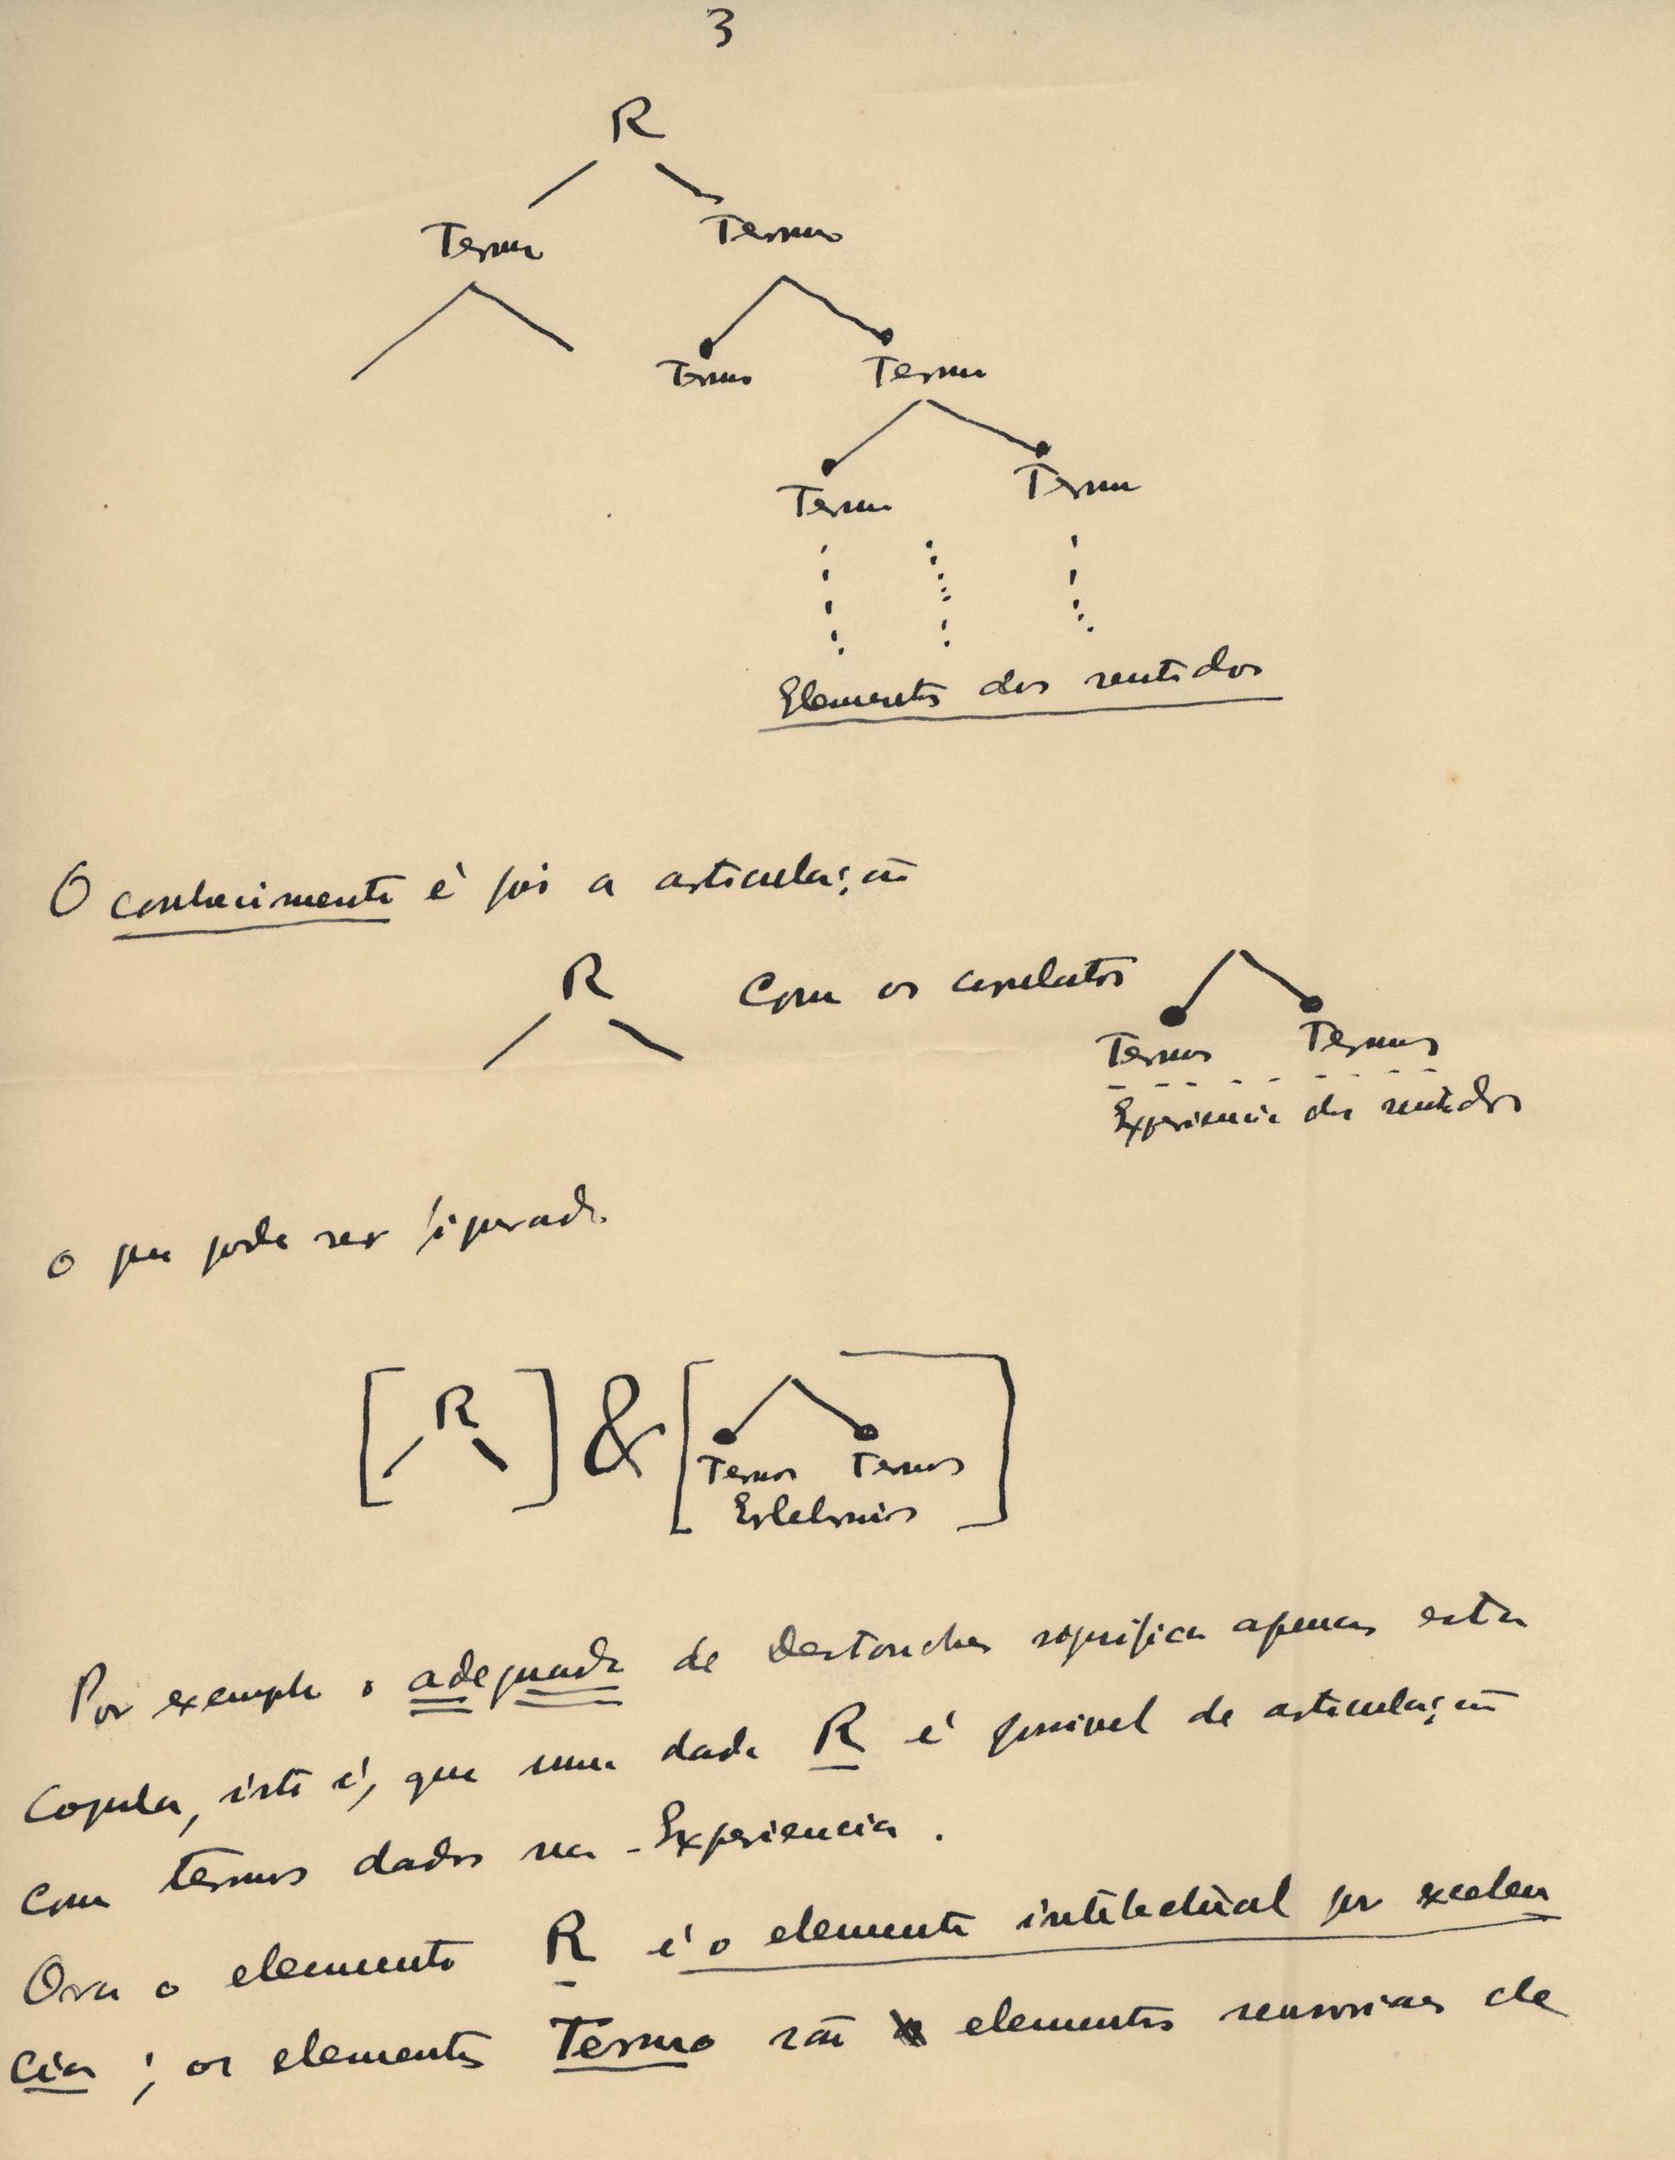 3
R
Termo Termo
Termo Termo
Termo Termo
Elementos dos sentidos
O conhecimento é pois a articulação
R com os correlatos
Termos Termos
Experiencia dos sentidos
o que pode ser figurado
[ R ] & [
Termos Termos
]
Por exemplo o adequado de Destouches significa apenas esta
copula, isto é, que uma dada R é possivel de articulação
com termos dados na Experiencia.
Ora o elemento R é o elemento intelectual por excelen
cia; os elementos Termo são elementos sensoriaes de